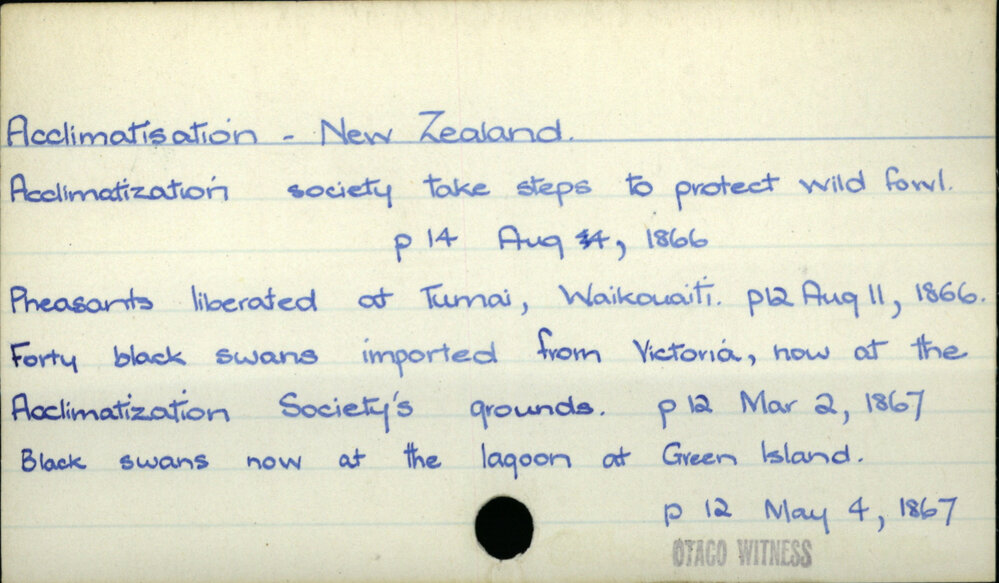 Acclimatisation - New Zealand.
Acclimatization society take steps to protect wild fowl.
p 14 Aug 4, 1866
Pheasants liberated at Tumai, Waikouaiti. p12 Aug 11, 1866.
Forty black swans imported from Victoria, now at the
Acclimatization Society's grounds. p 12 Mar 2, 1867
Black swans now at the lagoon at Green Island.
p 12 May 4, 1867
OTAGO WITNESS